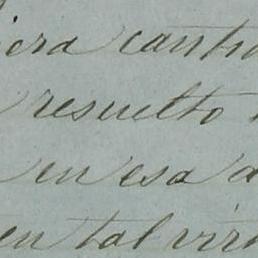 iera canti
resuelto
en esa a
en tal vir